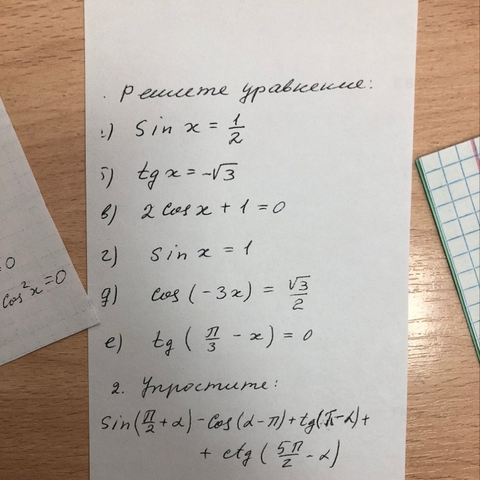 . Решите уравнение:
а) sin x = 1/2
б) tg x = -√3
в) 2 cos x + 1 = 0
г) sin x = 1
д) cos (-3x) = √3/2
е) tg (π/3 - x) = 0
2. Упростите:
sin(π/2 + α) - cos(α - π) + tg(π - α) +
+ ctg (5π/2 - α)
cos²x = 0